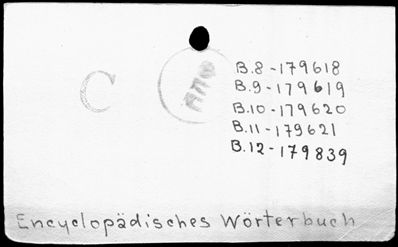 C
B.8-179618
B.9-179619
B.10-179620
B.11-179621
B.12-179839
Encyclopädisches Wörterbuch